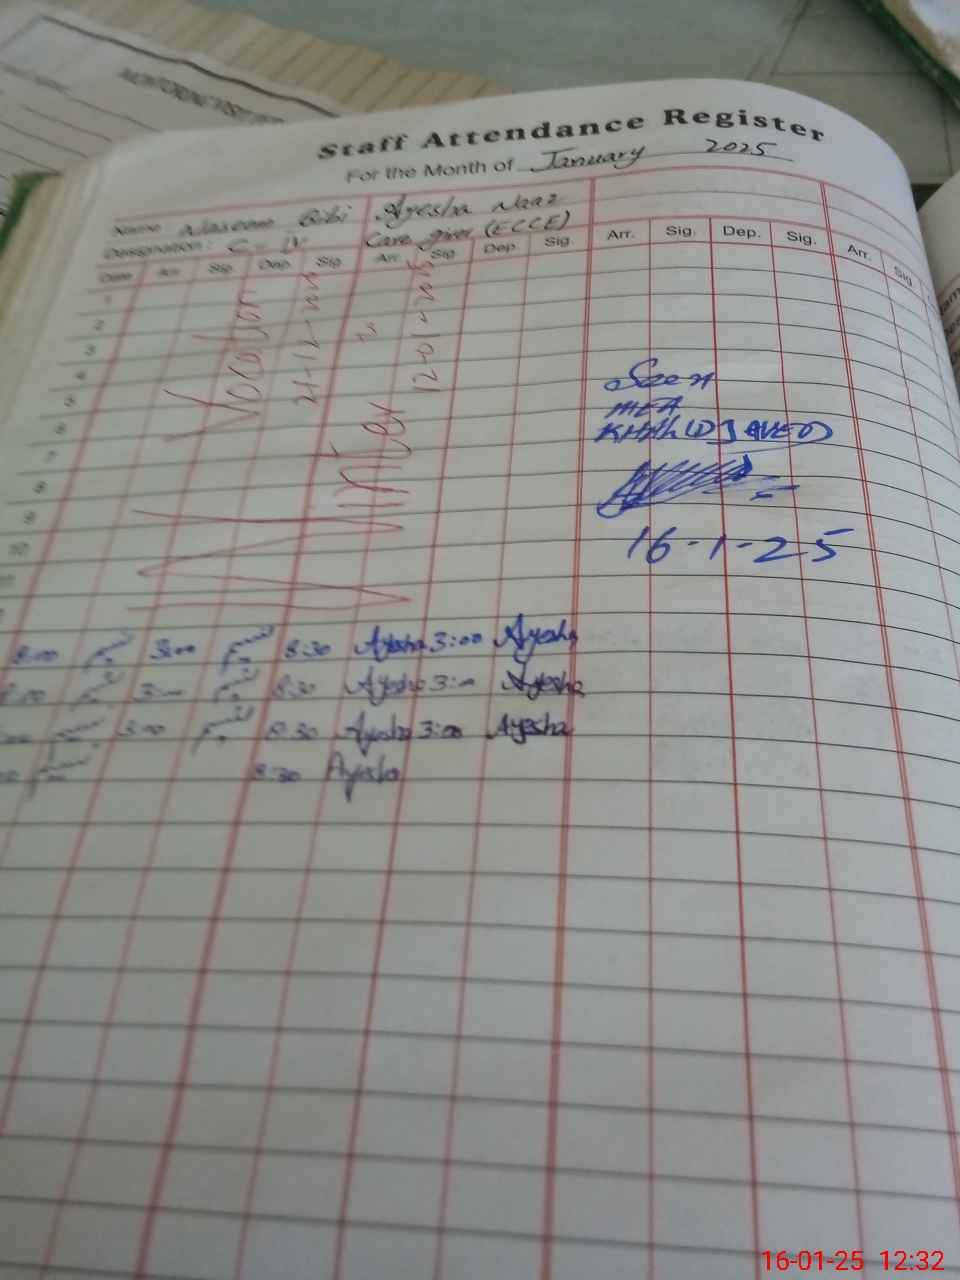 Staff Attendance Register
For the Month of January 2025
Name Naseem Bibi Ayesha Naaz
Designation: C-IV Care giver (ECCE)
Date Arr. Sig. Dep. Sig. Arr. Sig. Dep. Sig. Arr. Sig. Dep. Sig. Arr. Sig.
1
2
3
4
5
6
7
8
9
10
Winter Vacation
21-12-2024
to
12-01-2025
Seen
MEA
KHALID JAVED
16-1-25
8:00 3:00 8:30 Ayesha 3:00 Ayesha
8:00 3:00 8:30 Ayesha 3:00 Ayesha
3:00 8:30 Ayesha 3:00 Ayesha
8:30 Ayesha
16-01-25 12:32